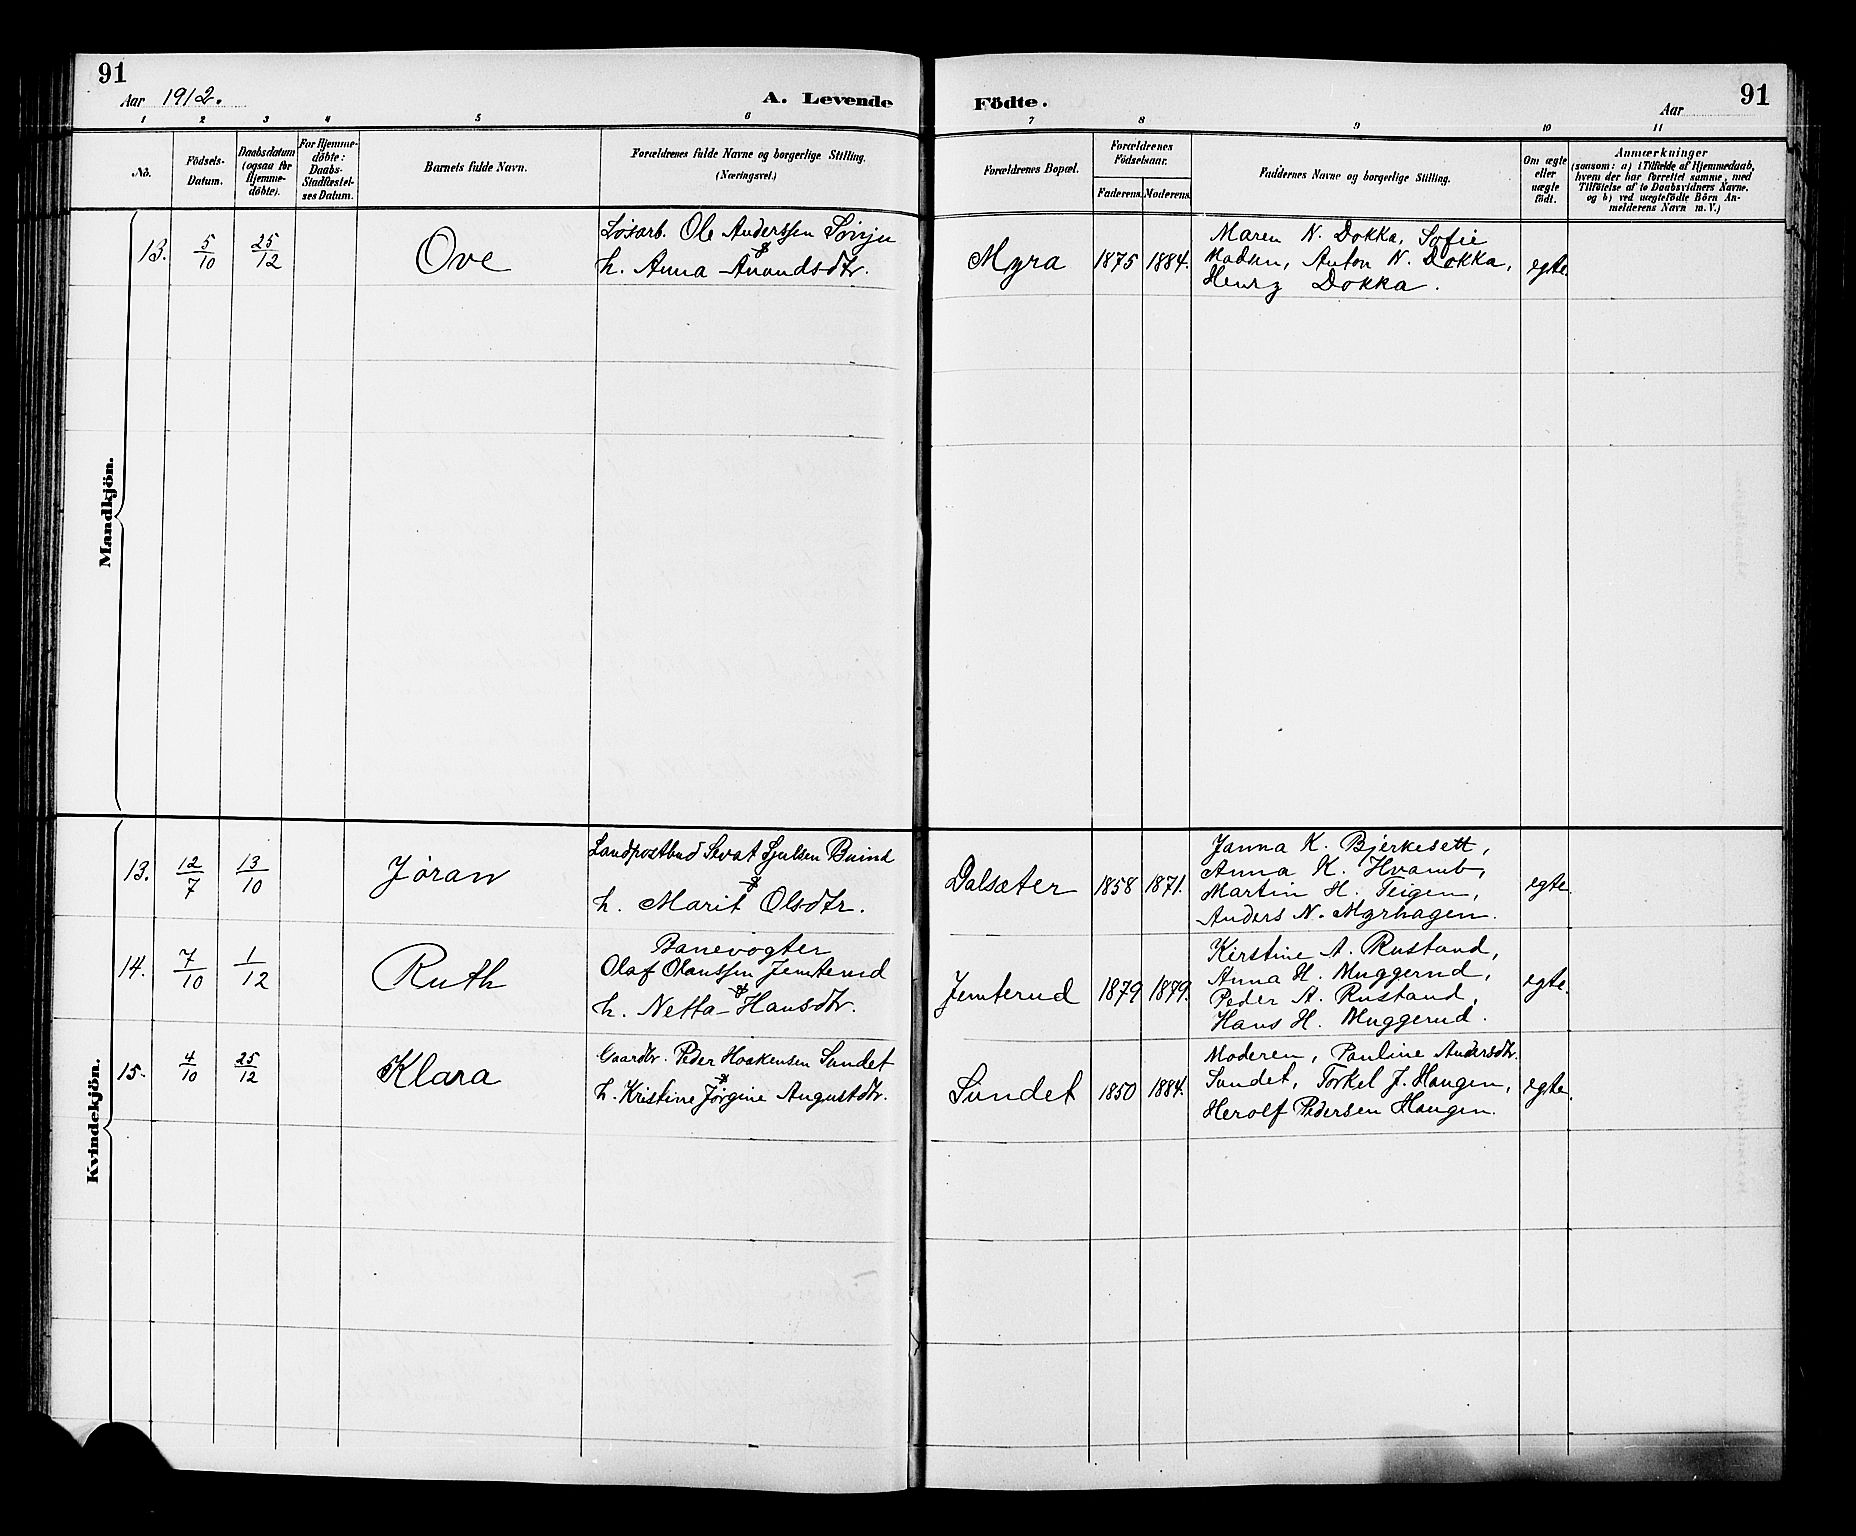 91
Aar 1912.
A. Levende
Födte.
Aar
91
1 2 3 4 5 6 7 8 9 10 11
No.
Födsels-Datum.
Daabsdatum (ogsaa for Hjemmedöbte).
For Hjemmedöbte: Daabs-Stadfæstelses Datum.
Barnets fulde Navn.
Forældrenes fulde Navne og borgerlige Stilling.
(Næringsvei.)
Forældrenes Bopæl.
Forældrenes Födselsaar.
Faderens. Moderens.
Faddernes Navne og borgerlige Stilling.
Om ægte eller uægte födt.
Anmærkninger
(saasom: a) i Tilfælde af Hjemmedaab,
hvem der har forrettet samme, med
Tilföielse af to Daabsvidners Navne.
og b) ved uægtefödte Börn An-
melderens Navn m. V.)
Mandkjön.
13. 5/10 25/12 Ove
Løsarb. Ole Anderssen
&
h. Anna Amundsdtr.
Myra 1875 1884.
Maren N. Dokka, Sofie
Madsen, Anton N. Dokka,
Henry Dokka.
egte.
Kvindekjön.
13. 12/7 13/10 Jøran
Landpostbud Sevat
&
h. Marit Olsdtr.
Dalsæter 1858 1871.
Janna K. Bjerkesett,
Anna K. Hvamb,
Martin H. Teigen,
Anders N. Myrhagen.
egte.
14. 7/10 1/12 Ruth
Banevogter
Olaf Olaussen Jemterud
&
h. Netta Hansdtr.
Jemterud 1879 1879.
Kirstine A. Rustand,
Anna H. Muggerud,
Peder A. Rustand,
Hans H. Muggerud.
egte.
15. 4/10 25/12 Klara
Gaardbr. Peder Haakensen Sundet
&
h. Kristine Jørgine Augustdtr.
Sundet 1850 1884.
Moderen, Pauline Andersdtr.
Sundet, Torkel J. Haugen,
Herolf Pedersen Haugen.
egte.